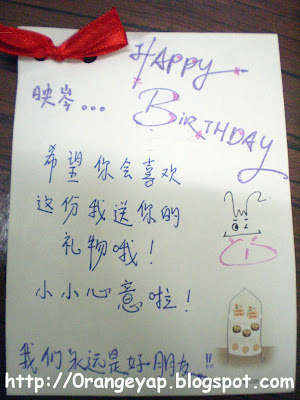 HAPPY
BIRTHDAY
映岑...
希望你会喜欢
这份我送你的
礼物哦！
小小心意啦！
我们永远是好朋友...!!
http://Orangeyap.blogspot.com